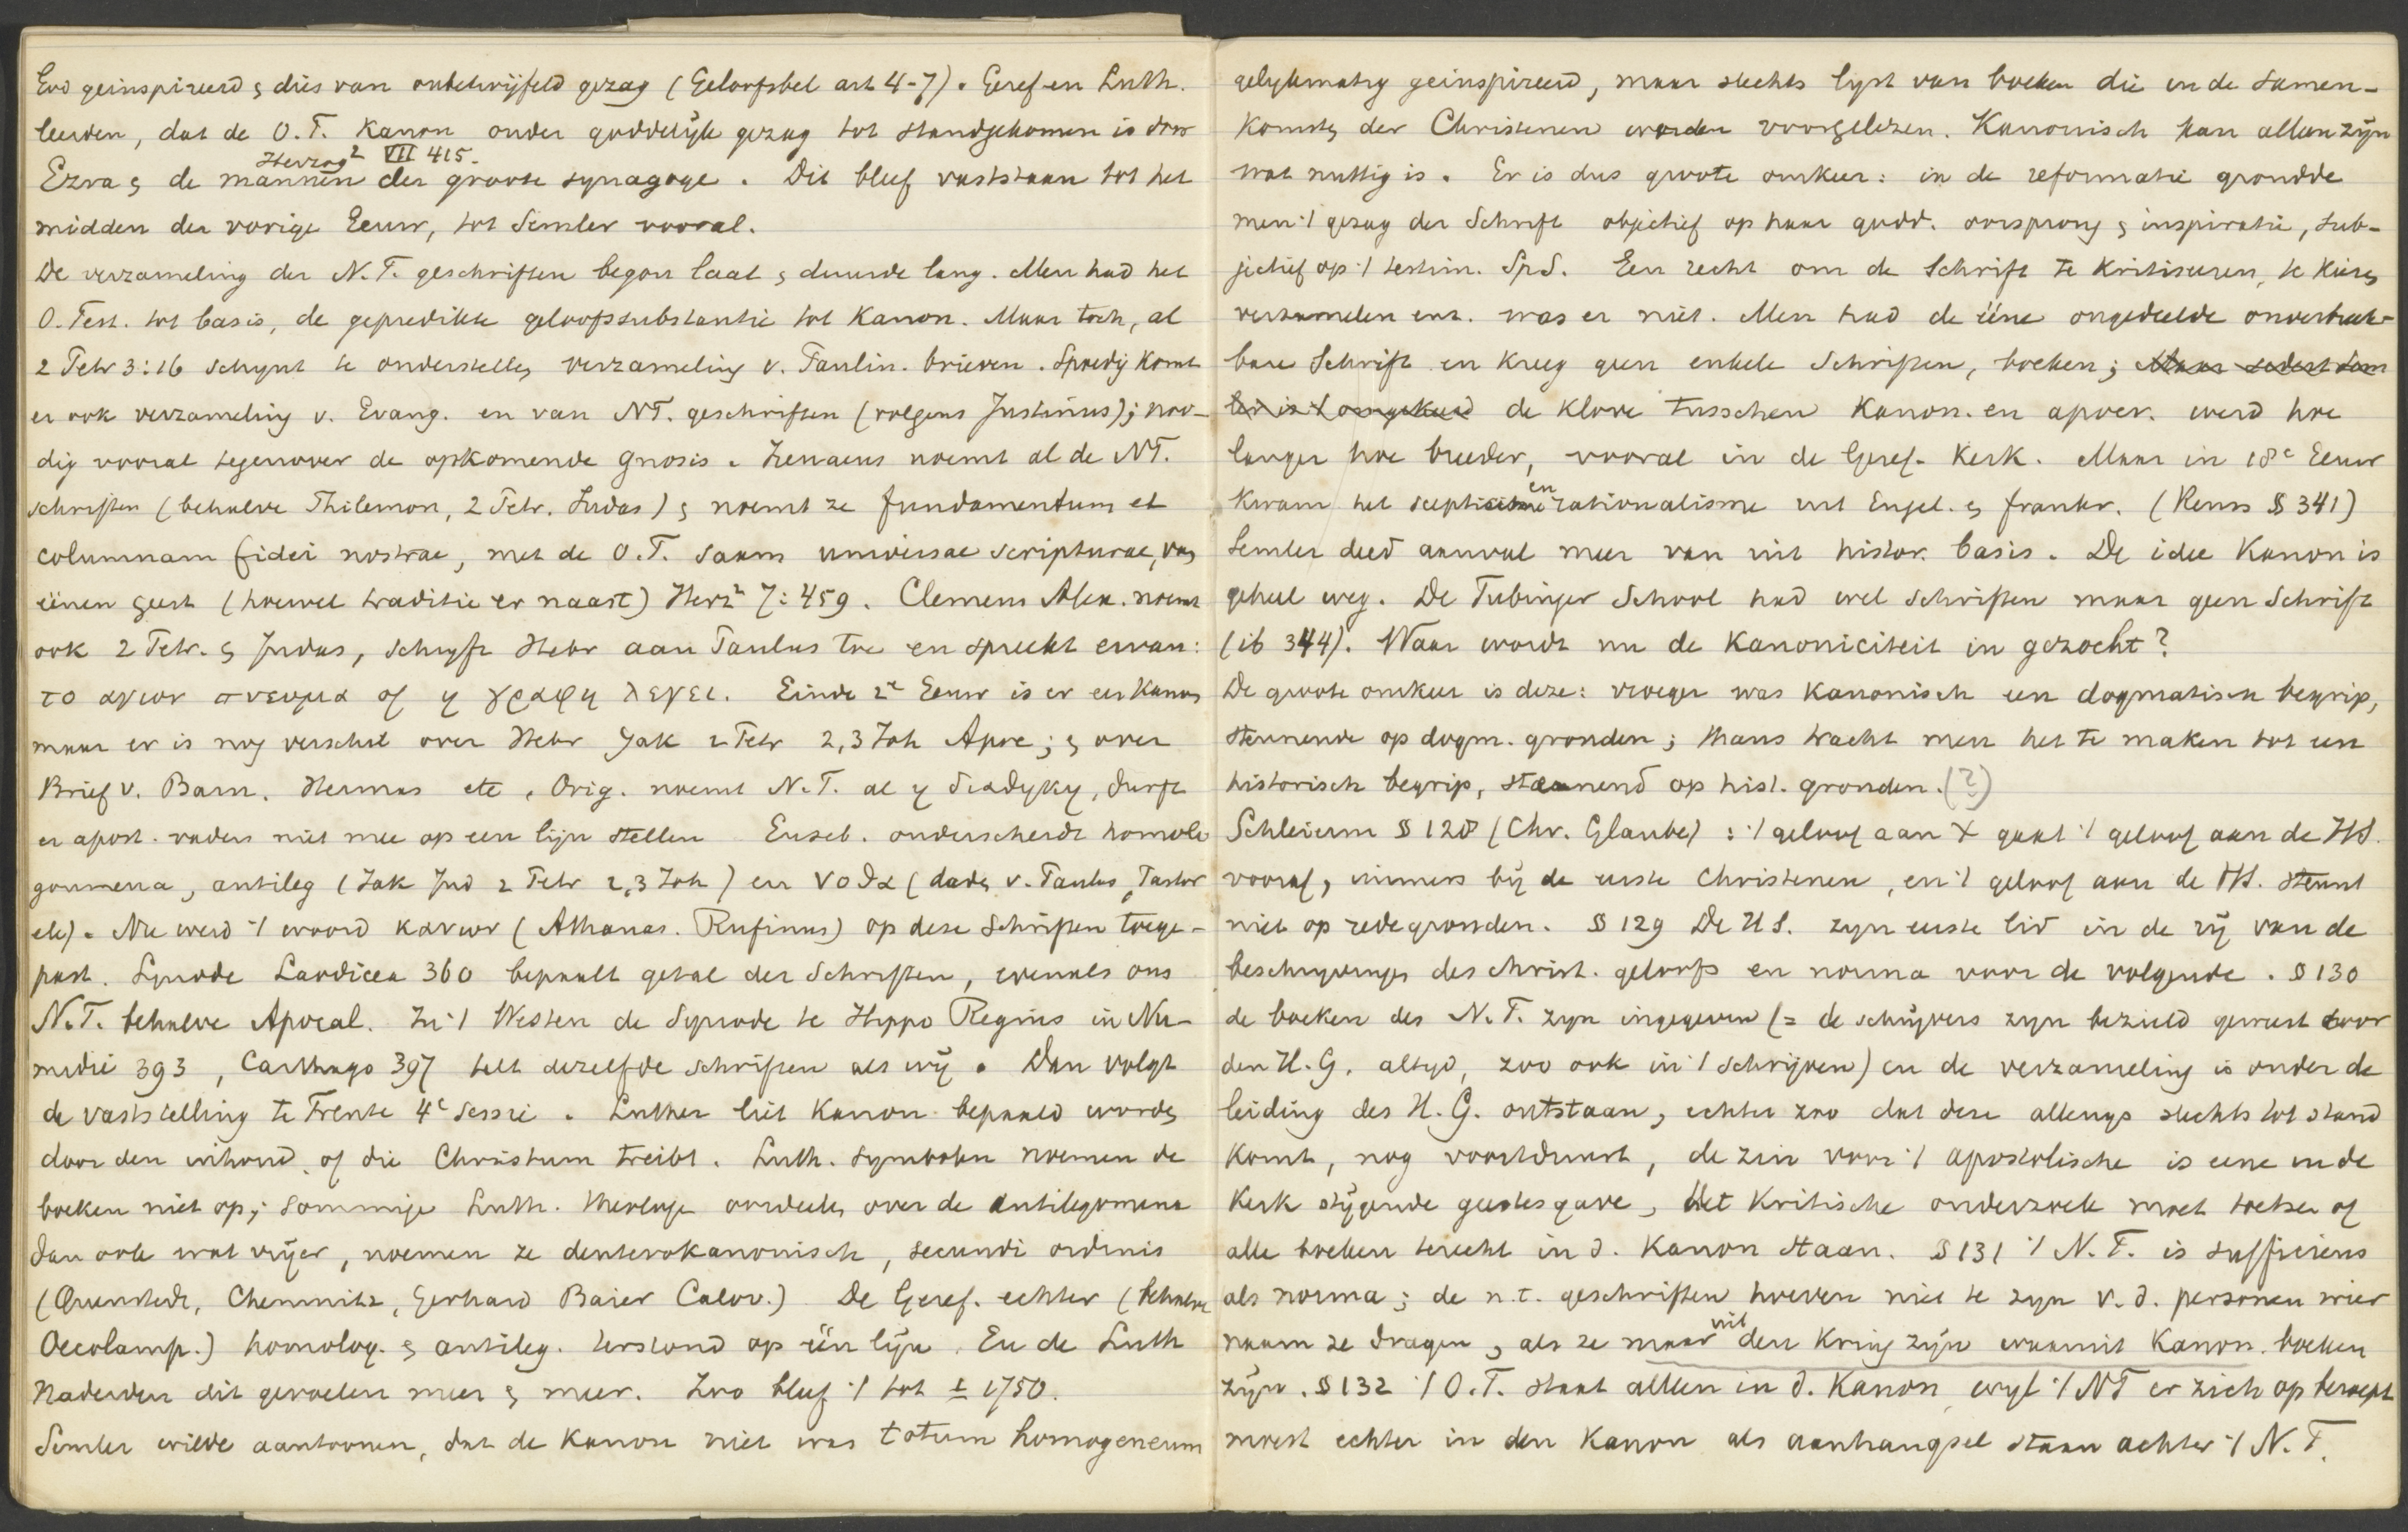 God geinspireerd & dus van onbetwijfeld gezag (Geloofsbel art 4-7). Geref en Luth.
leerden, dat de O.T. Kanon onder goddelijk gezag tot standgekomen is door
Herzog² VII 415.
Ezra & de mannen der groote synagoge. Dit bleef vaststaan tot het
midden der vorige Eeuw, tot Semler vooral.
De verzameling der N.T. geschriften begon laat & duurde lang. Men had het
O. Test. tot basis, de gepredikte geloofssubstantie tot Kanon. Maar toch, al
2 Petr 3:16 schynt te onderstellen verzameling v. Paulin. brieven. Spoedig komt
er ook verzameling v. Evang. en van NT. geschriften (volgens Justinus); noo-
dig vooral tegenover de opkomende Gnosis. Irenaeus noemt al de NT.
schriften (behalve Philemon, 2 Petr. Judas) & noemt ze fundamentum et
columnam fidei nostrae, met de O.T. saam universae scripturae, van
éénen geest (hoewel traditie er naast) Herz² 7:459. Clemens Alex. noemt
ook 2 Petr. & Judas, schryft Hebr aan Paulus toe en spreekt ervan:
το αγιον πνευμα of η γραφη λεγει. Einde 2e Eeuw is er een Kanon
maar er is nog verschil over Hebr Jak 2 Petr 2,3 Joh Apoc; & over
Brief v. Barn. Hermas etc. Orig. noemt N.T. al η διαθηκη, durft
er apost. vaders niet mee op een lijn stellen Euseb. onderscheidt homolo
goumena, antileg (Jak Jud 2 Petr 2,3 Joh) en νοθα (daden v. Paulus, Pastor
etc). Nu werd 't woord κανων (Athanas. Rufinus) op deze Schriften toege-
past. Synode Laodicea 360 bepaalt getal der Schriften, evenals ons
N.T. behalve Apocal. In 't Westen de Synode te Hippo Regius in Nu-
midië 393, Carthago 397 telt dezelfde schriften als wij. Dan volgt
de vaststelling te Trente 4e sessie. Luther liet Kanon bepaald worden
door den inhoud, of die Christum treibt. Luth. Symbolen noemen de
boeken niet op; sommige Luth. theologen oordeelen over de antilegomena
dan ook wat vrijer, noemen ze deuterokanonisch, secundi ordinis
(Quenstedt, Chemnitz, Gerhard Baier Calov.) De Geref. echter (behalve
Oecolamp.) homolog. & antileg. terstond op één lijn. En de Luth
naderden dit gevoelen meer & meer. Zoo bleef 't tot ± 1750.
Semler wilde aantoonen, dat de Kanon niet was totum homogeneum
gelykmatig geinspireerd, maar slechts lyst van boeken die in de samen-
komsten der Christenen worden voorgelezen. Kanonisch kan alleen zyn
wat nuttig is. Er is dus groote omkeer: in de reformatie grondde
men 't gezag der Schrift objectief op haar godd. oorsprong & inspiratie, sub-
jectief op 't testim. Sp.S. Een recht om de Schrift te kritiseeren, te kiezen
verzamelen enz. was er niet. Men had de ééne ongedeelde onverbreek-
bare Schrift en kreeg geen enkele Schriften, boeken; Maar sedert Sem
ler is 't omgekeerd de klove tusschen Kanon. en apocr. werd hoe
langer hoe breeder, vooral in de Geref. Kerk. Maar in 18e Eeuw
kwam het scepticisme en rationalisme uit Engel. & Frankr. (Reuss § 341)
Semler deed aanval meer van uit histor. basis. De idee Kanon is
geheel weg. De Tubinger School had wel schriften maar geen Schrift
(ib 344). Waar wordt nu de Kanoniciteit in gezocht?
De groote omkeer is deze: vroeger was kanonisch een dogmatisch begrip,
steunende op dogm. gronden; thans tracht men het te maken tot een
historisch begrip, steunend op hist. gronden. (?)
Schleierm § 128 (Chr. Glaube): 't geloof aan X gaat 't geloof aan de HS.
vooraf, immers bij de eerste Christenen, en 't geloof aan de HS. steunt
niet op redegronden. § 129 De H S. zyn eerste lid in de rij van de
beschryvingen des christ. geloofs en norma voor de volgende. § 130
de boeken des N.T. zyn ingegeven (= de schrijvers zyn bezield geweest door
den H.G. altyd, zoo ook in 't schrijven) en de verzameling is onder de
leiding des H.G. ontstaan, echter zoo dat deze allengs slechts tot stand
komt, nog voortduurt, de zin voor 't apostolische is eene in de
Kerk stijgende geestesgave, Het kritische onderzoek moet toetsen of
alle boeken terecht in d. Kanon staan. § 131 't N.T. is sufficiens
als norma; de n.t. geschriften hoeven niet te zyn v. d. personen wier
naam ze dragen, als ze maar uit den kring zijn waaruit Kanon. boeken
zijn. § 132 't O.T. staat alleen in d. Kanon, wyl 't NT er zich op beroept
moest echter in den Kanon als aanhangsel staan achter 't N.T.